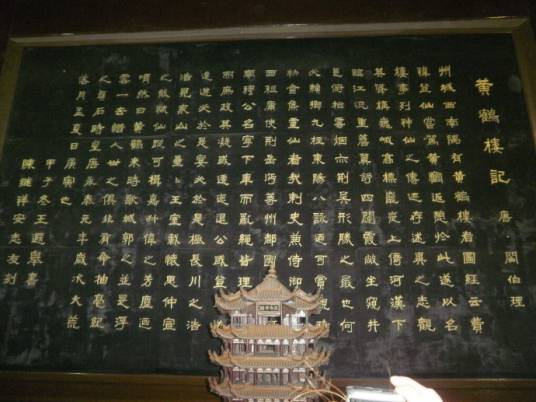 黄鶴樓記
唐 閻伯理
州城西南隅有黄鶴樓者圖經云費
禕登仙嘗駕黄鶴返憩於此遂以名
樓事列神仙之傳迹存述異之志觀
其聳構巍峨高標巃嵸上倚河漢下
臨江流重簷翼舘四闥霞敞坐窺井
邑俯拍雲烟亦荆吴形勝之最也何
必瀨鄉九柱東陽八詠迺可賞觀
物會集靈仙者哉刺史兼侍御
西租庸使荆岳沔等州都團
南穆公名寧下車而亂繩皆理
而庶政其凝或逶迤退公或登
遠遊必於是宴必於是極長川之浩
浩見衆山之纍纍王室載懷思仲宣
之能賦仙蹤可揖嘉叔偉之芳塵迺
喟然曰黄鶴來時歌城郭之並是浮
雲一去惜人世之俱非有命抽毫紀
之貞石時皇唐永泰元年歲次大荒
落月孟夏日庚寅也
甲子冬王遐舉書
陳維祥安志友刻